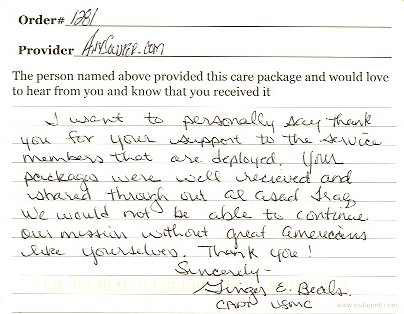 Order# 1281
Provider AnySoldier.com
The person named above provided this care package and would love
to hear from you and know that you received it
I want to personally say thank
you for your support to the service
members that are deployed. Your
packages were well recieved and
shared through out al asad Iraq
We would not be able to continue
our mission without great Americans
like yourselves. Thank you!
Sincerely-
Ginger E. Beals
CAPT USMC